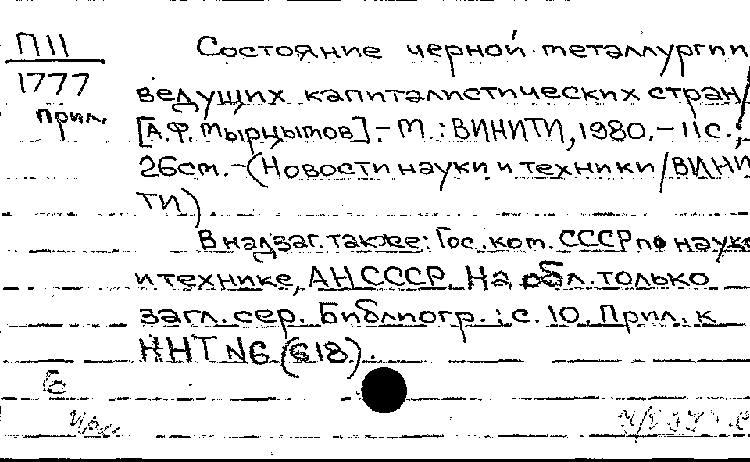 П 11
1777
прил.
Состояние черной металлургии
ведущих капиталистических стран/
[А.Ф. Мырцымов].- М.: ВИНИТИ, 1980.- 11 с.;
26 см.- (Новости науки и техники/ВИНИ
ТИ)
В надзаг. также: Гос. ком. СССР по науке
и технике, АН СССР. На обл. только
загл. сер. Библиогр.: с. 10. Прил. к
ННТ N6 (618).